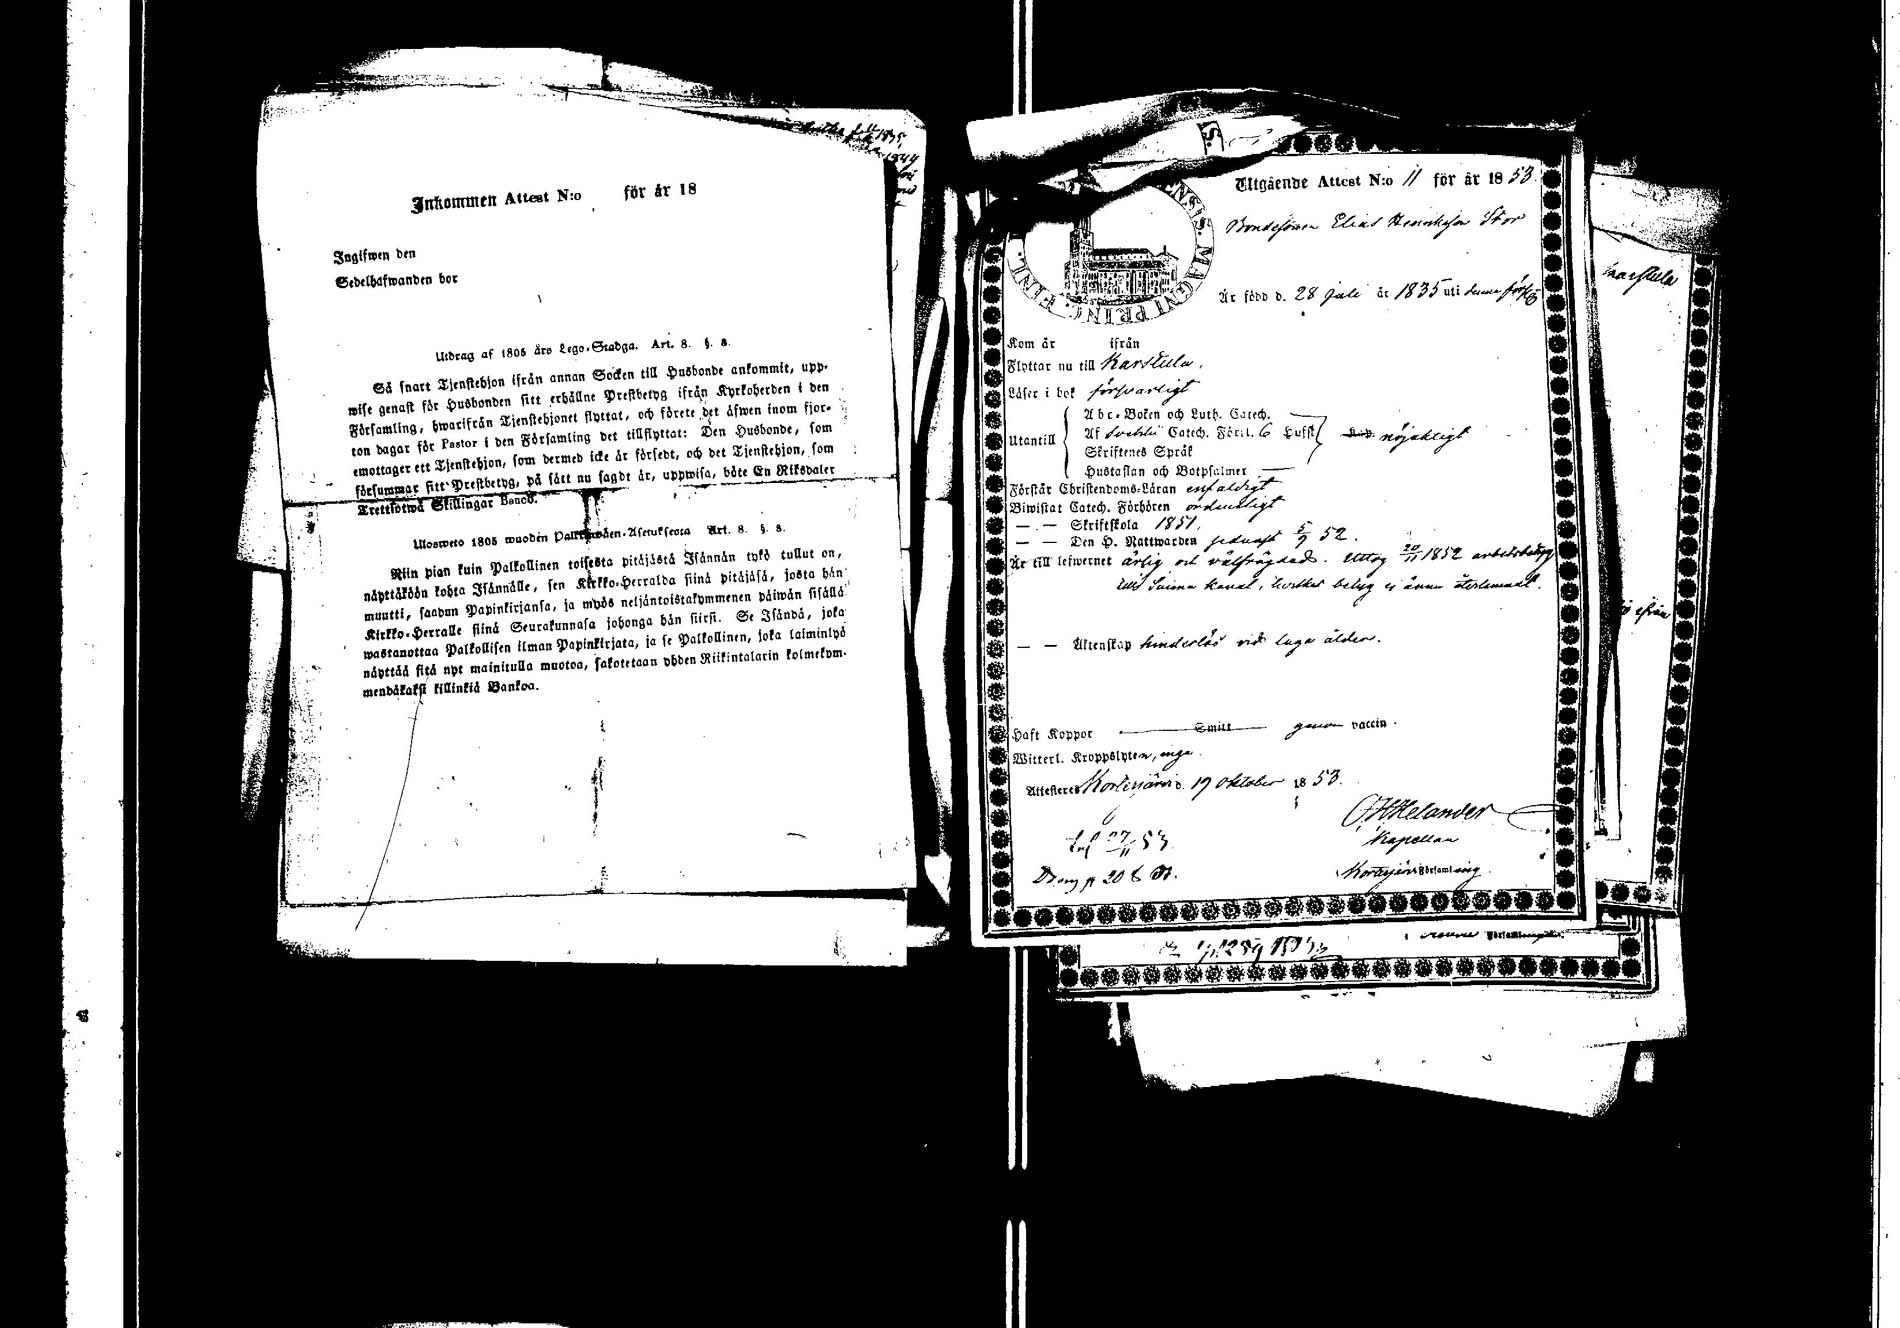 Inkommen Attest N:o för år 18
Ingifwen den
Sedelhafwanden bor
Utdrag af 1805 års Lego-Stadga. Art. 8. §. 8.
Så snart Tjenstehjon ifrån annan Socken till Husbonde ankommit, upp-
wise genast för Husbonden sitt erhållne Prestbetyg ifrån Kyrkoherden i den
Församling, hwarifrån Tjenstehjonet flyttat, och förete det äfwen inom fjor-
ton dagar för Pastor i den Församling det tillflyttat: Den Husbonde, som
emottager ett Tjenstehjon, som dermed icke är försedt, och det Tjenstehjon, som
försummar sitt Prestbetyg, på sätt nu sagdt är, uppwisa, böte En Riksdaler
Trettiotwå Skillingar Banco.
Ulosweto 1805 wuoden Palkkawäen-Asetuksesta Art. 8. §. 8.
Niin pian kuin Palkollinen toisesta pitäjästä Isännän tykö tullut on,
näyttäköön kohta Isännälle, sen Kirkko-Herralda siinä pitäjäsä, josta hän
muutti, saadun Papinkirjansa, ja myös neljäntoistakymmenen päiwän sisällä
Kirkko-Herralle siinä Seurakunnasa johonga hän siirsi. Se Isändä, joka
wastanottaa Palkollisen ilman Papinkirjata, ja se Palkollinen, joka laiminlyö
näyttää sitä nyt mainitulla muotoa, sakotetaan yhden Riikintalarin kolmekym-
mendäkaksi killinkiä Bankoa.
1844
S.
ENSIS. MAGNI PRINC. FINL.
Utgående Attest N:o 11 för år 1853.
Bondesonen Elias Henriksson Stor
Är född d. 28 Juli år 1835 uti denna förs:g
Kom år ifrån
Flyttar nu till Karstula.
Läser i bok försvarligt
Utantill
Abc-Boken och Luth. Catech.
Af Svebelii Catech. Förkl. 6 Hufst
nöjakligt
Skriftenes Språk
Hustaflan och Botpsalmer —
Förstår Christendoms-Läran enfaldigt
Biwistat Catech. Förhören ordentligt
— — Skriftskola 1851.
— — Den H. Nattwarden sednast 5/9 52.
Är till lefwernet ärlig och välfrägdad. Uttog 20/11 1852 arbetsbetyg
till Saima kanal, hvilket betyg ej ännu återlemnadt.
— — Äktenskap hinderlös vid laga ålder.
Haft Koppor — Smitt — genom vaccin.
Witterl. Kroppslyten, inga.
Attesteras Kortesjärvi d. 19 Oktober 1853.
Helander
Kapellan
Kortesjärvi Församling.
27/11 53.
Karstula
ifrån
Församling.